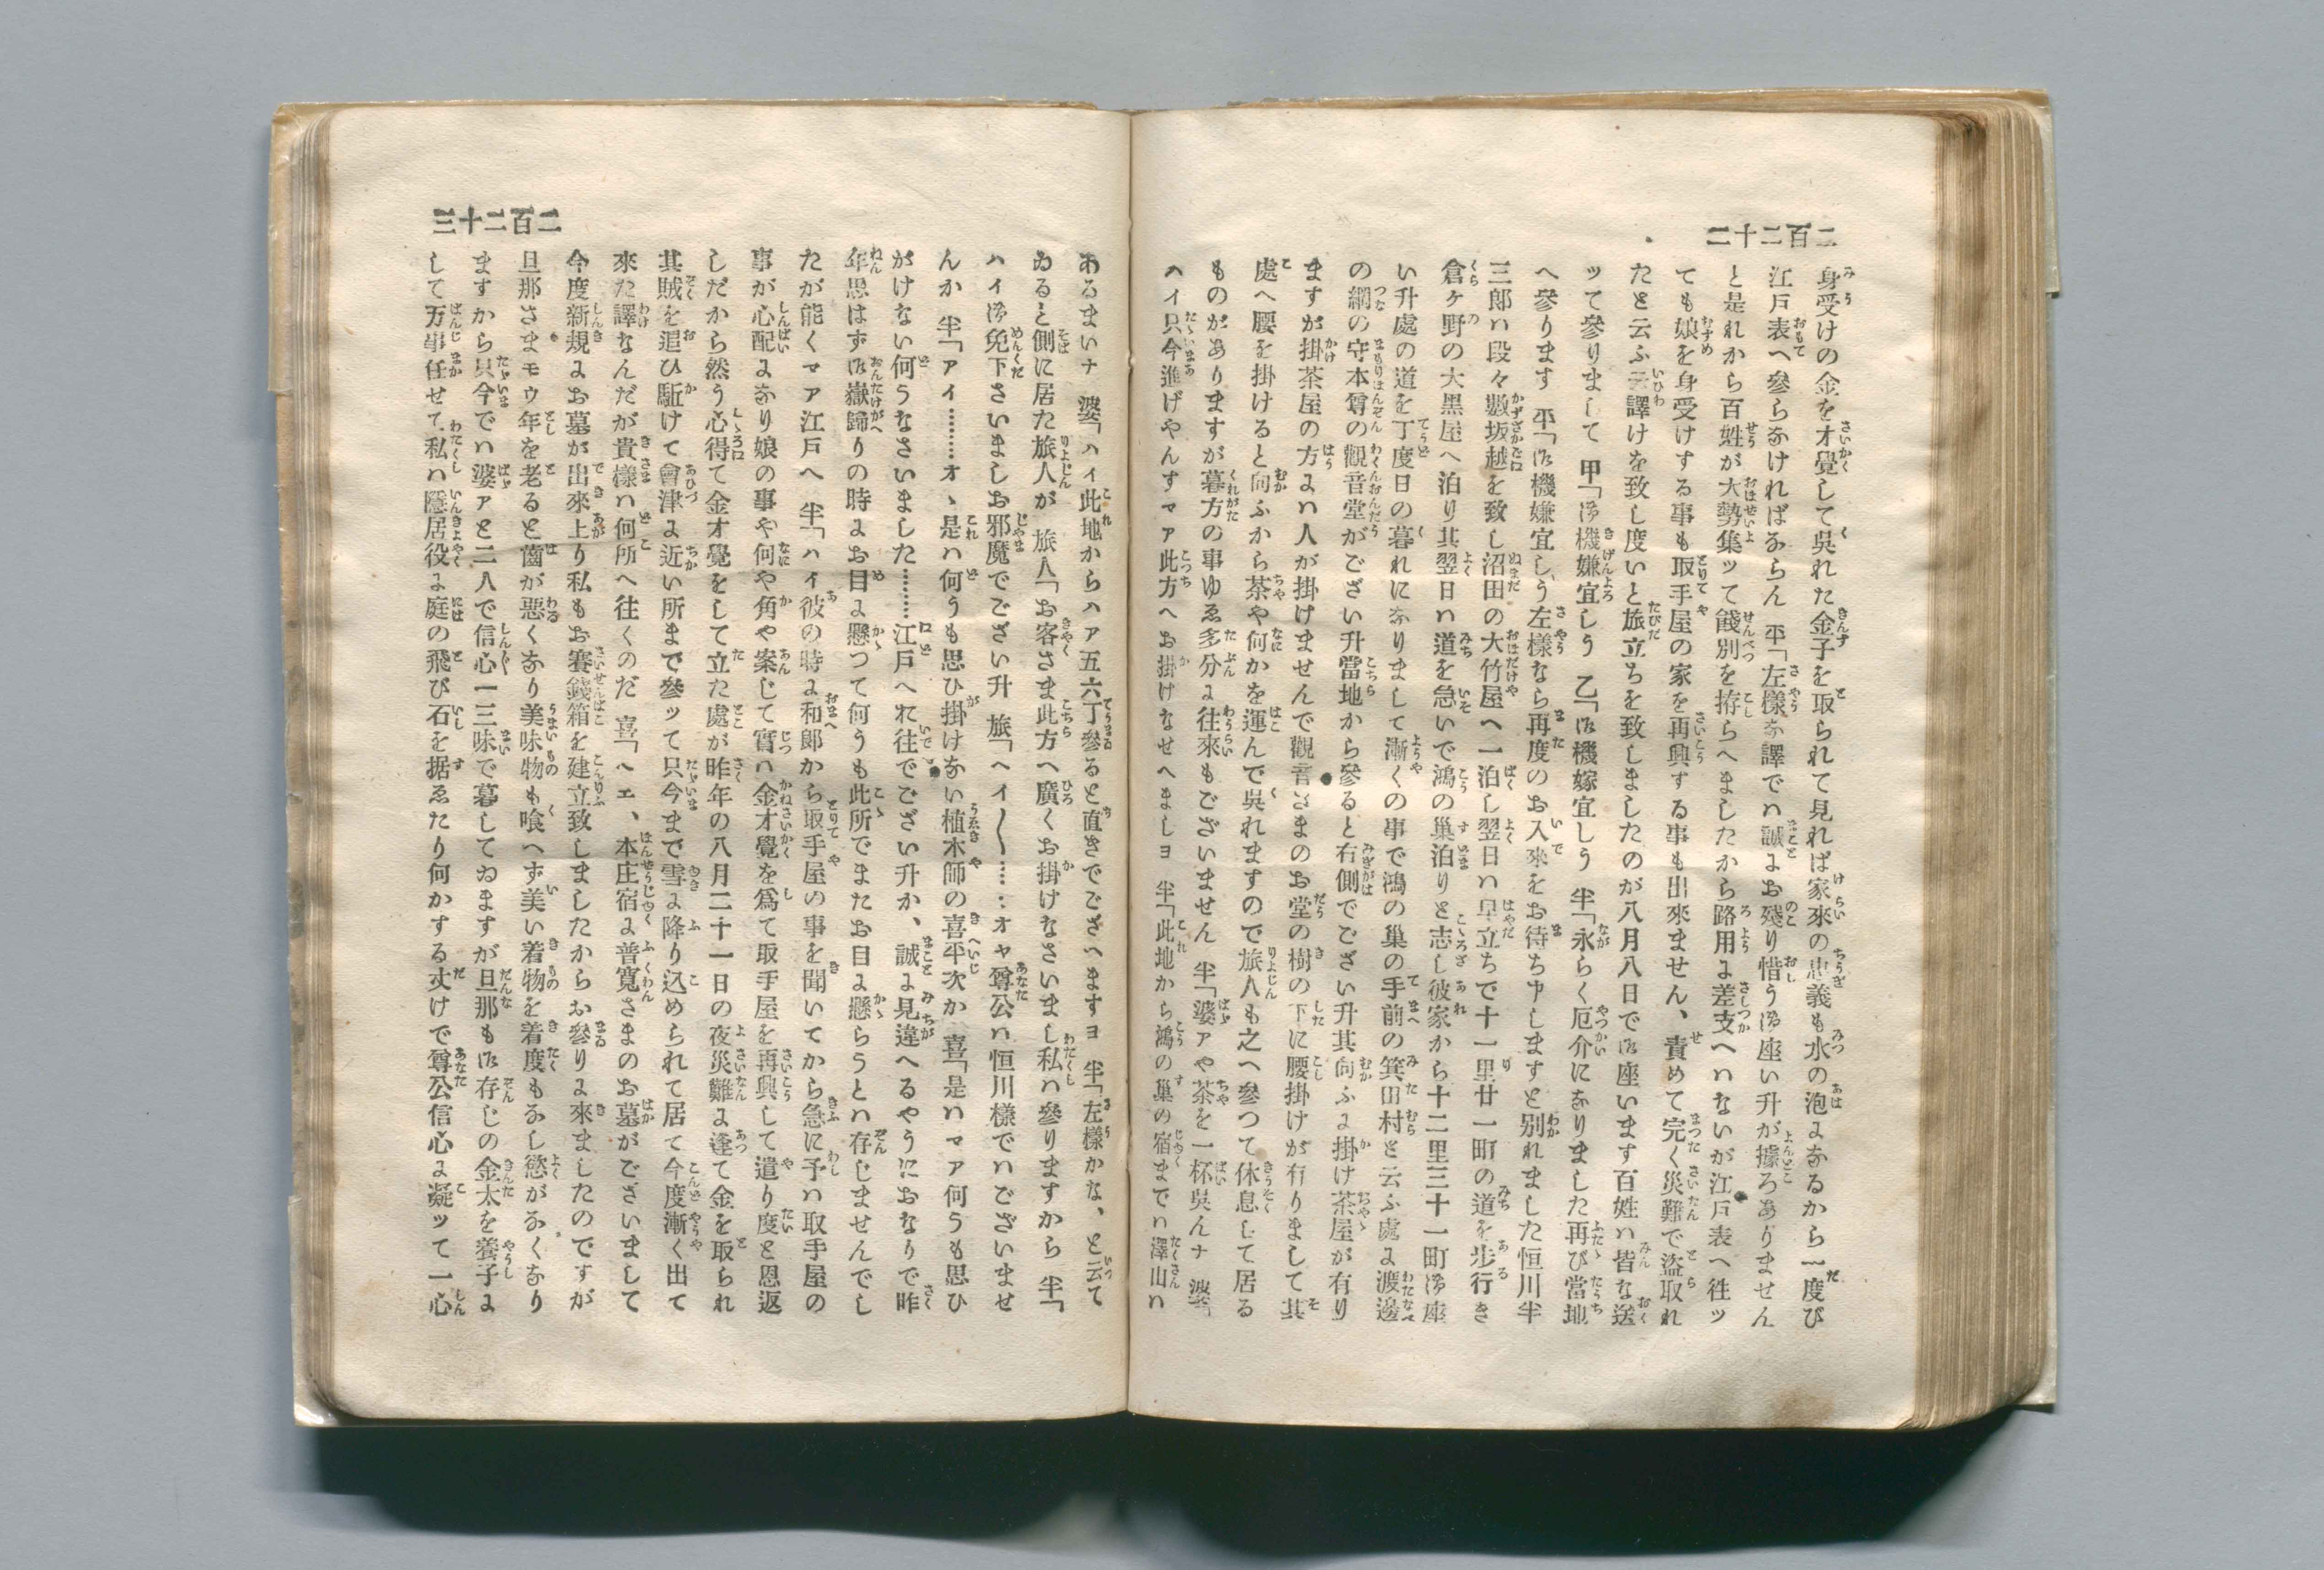 二百二十二
身受けの金を才覺して吳れた金子を取られて見れば家來の忠義も水の泡になるから一度び
江戸表へ參らなければならん 平「左樣な譯でハ誠にお殘り惜う御座い升が據ろありません
と是れから百姓が大勢集ッて餞別を拵らへましたから路用に差支へハないが江戸表へ徃ッ
ても娘を身受けする事も取手屋の家を再興する事も出來ません、責めて完く災難で盜取れ
たと云ふ言譯けを致し度いと旅立ちを致しましたのが八月八日で御座います百姓ハ皆な送
ッて參りまして 甲「御機嫌宜しう 乙「御機嫁宜しう 半「永らく厄介になりました再び當地
へ參ります 平「御機嫌宜しう左樣なら再度のお入來をお待ち申しますと別れました恒川半
三郎ハ段々數坂越を致し沼田の大竹屋へ一泊し翌日ハ早立ちで十一里廿一町の道を步行き
倉ヶ野の大黑屋へ泊り其翌日ハ道を急いで鴻の巢泊りと志し彼家から十二里三十一町御座
い升處の道を丁度日の暮れになりまして漸くの事で鴻の巢の手前の箕田村と云ふ處に渡邊
の綱の守本尊の觀音堂がござい升當地から參ると右側でござい升其向ふに掛け茶屋が有り
ますが掛茶屋の方にハ人が掛けませんで觀音さまのお堂の樹の下に腰掛けが有りまして其
處へ腰を掛けると向ふから茶や何かを運んで吳れますので旅人も之へ參つて休息して居る
ものがありますが暮方の事ゆゑ多分に往來もございません 半「婆アや茶を一杯吳んナ 婆「
ハイ只今進げやんすマア此方へお掛けなせへましヨ 半「此地から鴻の巢の宿までハ澤山ハ
二百二十三
あるまいナ 婆「ハイ此地からハア五六丁參ると直きでござへますヨ 半「左樣かな、と云て
ゐると側に居た旅人が 旅人「お客さま此方へ廣くお掛けなさいまし私ハ參りますから 半「
ハイ御免下さいましお邪魔でござい升 旅「ヘイ〱……オヤ尊公ハ恒川樣でハございませ
んか 半「アイ………オヽ是ハ何うも思ひ掛けない植木師の喜平次か 喜「是ハマア何うも思ひ
がけない何うなさいました………江戸へお往でござい升か、誠に見違へるやうにおなりで昨
年思はず御嶽歸りの時にお目に懸つて何うも此所でまたお目に懸らうとハ存じませんでし
たが能くマア江戸へ 半「ハイ彼の時に和郎から取手屋の事を聞いてから急に予ハ取手屋の
事が心配になり娘の事や何や角や案じて實ハ金才覺を爲て取手屋を再興して遣り度いと恩返
しだから然う心得て金才覺をして立た處が昨年の八月二十一日の夜災難に逢て金を取られ
其賊を追ひ駈けて會津に近い所まで參ッて只今まで雪に降り込められて居て今度漸く出て
來た譯なんだが貴樣ハ何所へ往くのだ 喜「ヘエ、本庄宿に普寬さまのお墓がございまして
今度新規にお墓が出來上り私もお賽錢箱を建立致しましたからお參りに來ましたのですが
旦那さまモウ年を老ると齒が惡くなり美味物も喰へず美い着物を着度もなし慾がなくなり
ますから只今でハ婆アと二人で信心一三昧で暮してゐますが旦那も御存じの金太を養子に
して万事任せて私ハ隱居役に庭の飛び石を据ゑたり何かする丈けで尊公信心に凝ッて一心